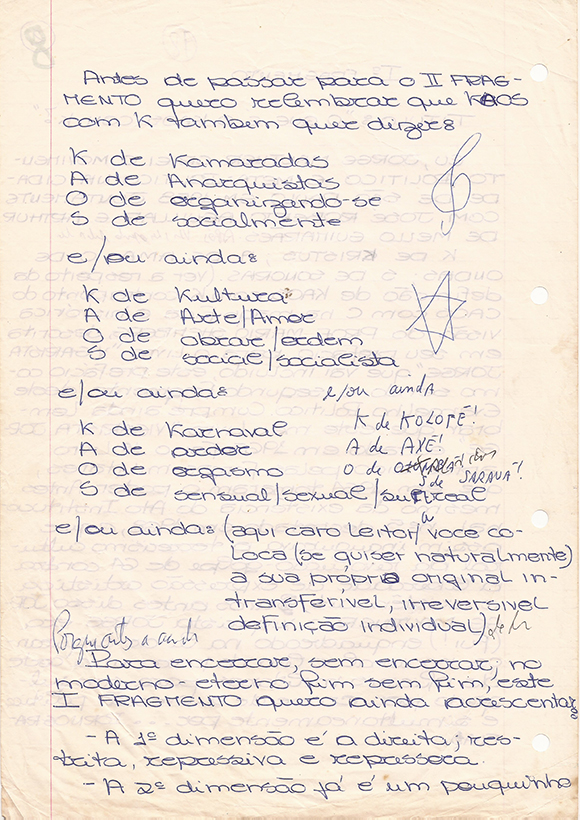 Antes de passar para o II FRAG-
MENTO quero relembrar que KAOS
com K tambem quer dizer:
K de Kamaradas
A de Anarquistas
O de organizando-se
S de socialmente
e/ou ainda:
K de Kultura
A de Arte/Amor
O de obrar/erdem
S de social/socialista
e/ou ainda:
K de Karnaval
A de ardor
O de orgasmo
S de sensual/sexual/surreal
e/ou ainda
K de KOLOFÉ!
A de AXÉ!
O de
S de SARAVÁ!
e/ou ainda: (aqui caro leitor/a voce co-
loca (se quiser naturalmente)
a sua própria original in-
transferível, irreversivel
definição individual)
Para encerrar, sem encerrar, no
moderno-eterno fim sem fim, este
I FRAGMENTO quero ainda acrescentar:
- A 1ª dimensão é a direita, res-
trita, repressiva e repressora.
- A 2ª dimensão já é um pouquinho